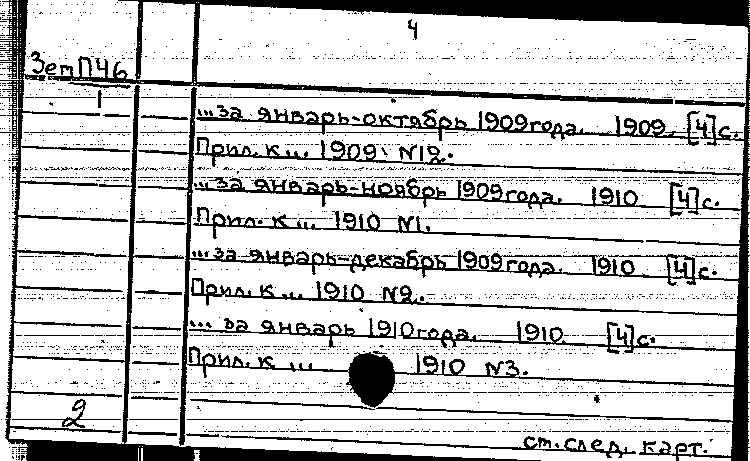 4
ЗемП46
1
...за январь-октябрь 1909года. 1909. [4]с.
Прил. к ... 1909. N12.
...за январь-ноябрь 1909года. 1910 [4]с.
Прил. к ... 1910 N1.
...за январь-декабрь 1909года. 1910 [4]с.
Прил. к ... 1910 N2.
... за январь 1910года. 1910. [4]с.
Прил. к ... 1910 N3.
2
см. след. карт.